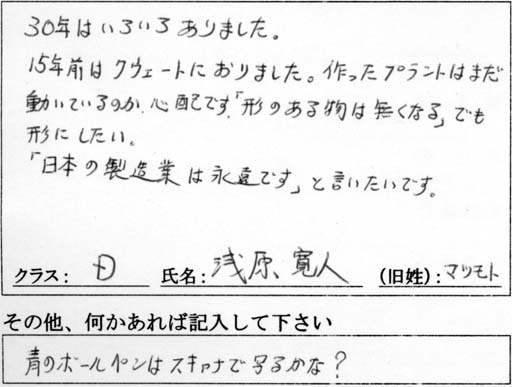 30年はいろいろありました。
15年前はクウェートにおりました。作ったプラントはまだ
動いているのか、心配です。「形のある物は無くなる」でも
形にしたい。
「日本の製造業は永遠です」と言いたいです。
クラス： D 氏名： 浅原、寛人 (旧姓)： マツモト
その他、何かあれば記入して下さい
青のボールペンはスキャナで写るかな？